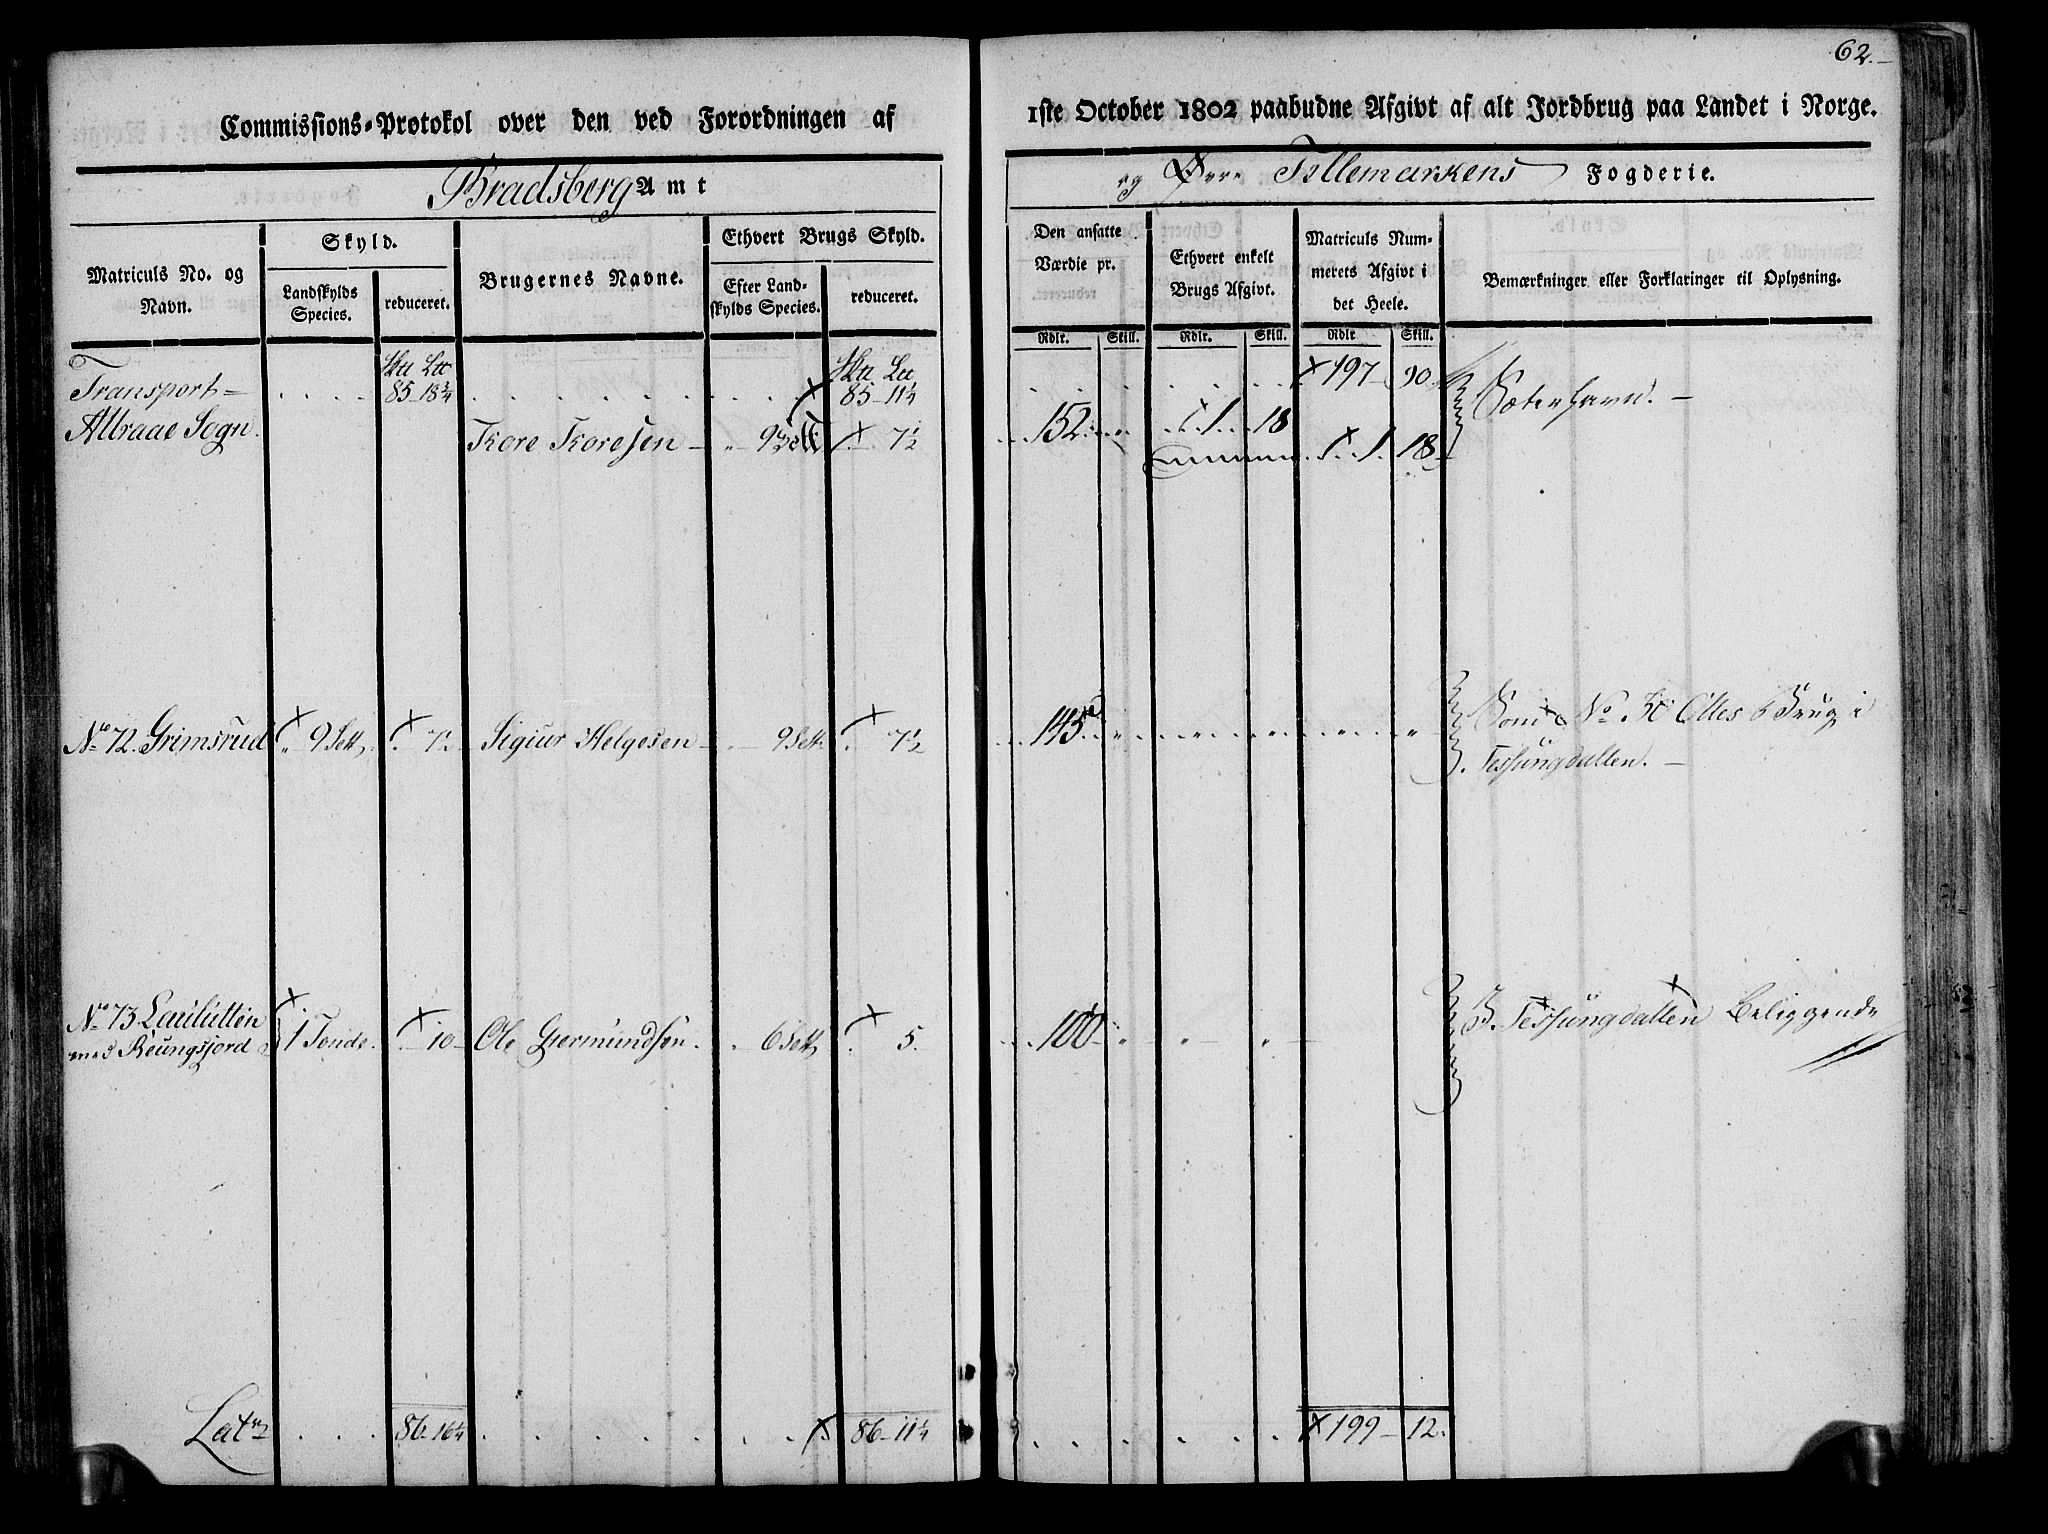 62.
Commissions-Protokol over den ved Forordningen af 1ste October 1802 paabudne Afgivt af alt Jordbrug paa Landet i Norge.
Bradsberg Amt og Øvre Tellemarkens Fogderie.
Matriculs No. og Navn.
Skyld.
Landskylds Species.
reduceret.
Brugernes Navne.
Ethvert Brugs Skyld.
Efter Landskylds Species.
reduceret.
Den ansatte Værdie pr.
Rdlr. Skill.
Ethvert enkelt Brugs Afgivt.
Rdlr. Skill.
Matriculs Nummerets Afgivt i det Heele.
Rdlr Skill.
Bemærkninger eller Forklaringer til Oplysning.
Transport 85 - 18 3/4 85 - 11 1/4 197 90
Attraae Sogn.
Tore Toresen 9 7 1/2 152 1 18 1 18
No 72. Grimsrud 9 Sett 7 1/2 Sigur Helgesen 9 Sett 7 1/2 145 Som No 50 Brug i
Tessungdallen.
No 73 Laulutten
med Reungsjord 1 Tønde 10 Ole Giermundsen 6 Sett 5. 100 Tessungdallen Beliggende
Lat 86 - 16 1/4 86 - 11 1/4 199 - 12.